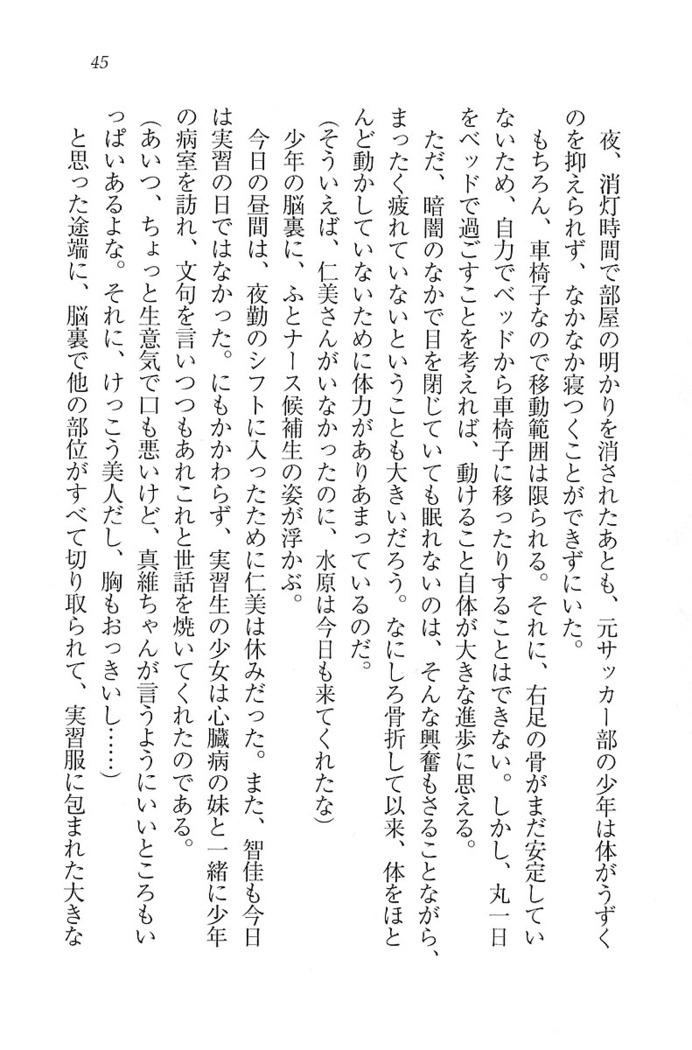 45
夜、消灯時間で部屋の明かりを消されたあとも、元サッカー部の少年は体がうずく
のを抑えられず、なかなか寝つくことができずにいた。
もちろん、車椅子なので移動範囲は限られる。それに、右足の骨がまだ安定してい
ないため、自力でベッドから車椅子に移ったりすることはできない。しかし、丸一日
をベッドで過ごすことを考えれば、動けること自体が大きな進歩に思える。
ただ、暗闇のなかで目を閉じていても眠れないのは、そんな興奮もさることながら、
まったく疲れていないということも大きいだろう。なにしろ骨折して以来、体をほと
んど動かしていないために体力がありあまっているのだ。
（そういえば、仁美さんがいなかったのに、水原は今日も来てくれたな）
少年の脳裏に、ふとナース候補生の姿が浮かぶ。
今日の昼間は、夜勤のシフトに入ったために仁美は休みだった。また、智佳も今日
は実習の日ではなかった。にもかかわらず、実習生の少女は心臓病の妹と一緒に少年
の病室を訪れ、文句を言いつつもあれこれと世話を焼いてくれたのである。
（あいつ、ちょっと生意気で口も悪いけど、真維ちゃんが言うようにいいところもい
っぱいあるよな。それに、けっこう美人だし、胸もおっきいし……）
と思った途端に、脳裏で他の部位がすべて切り取られて、実習服に包まれた大きな